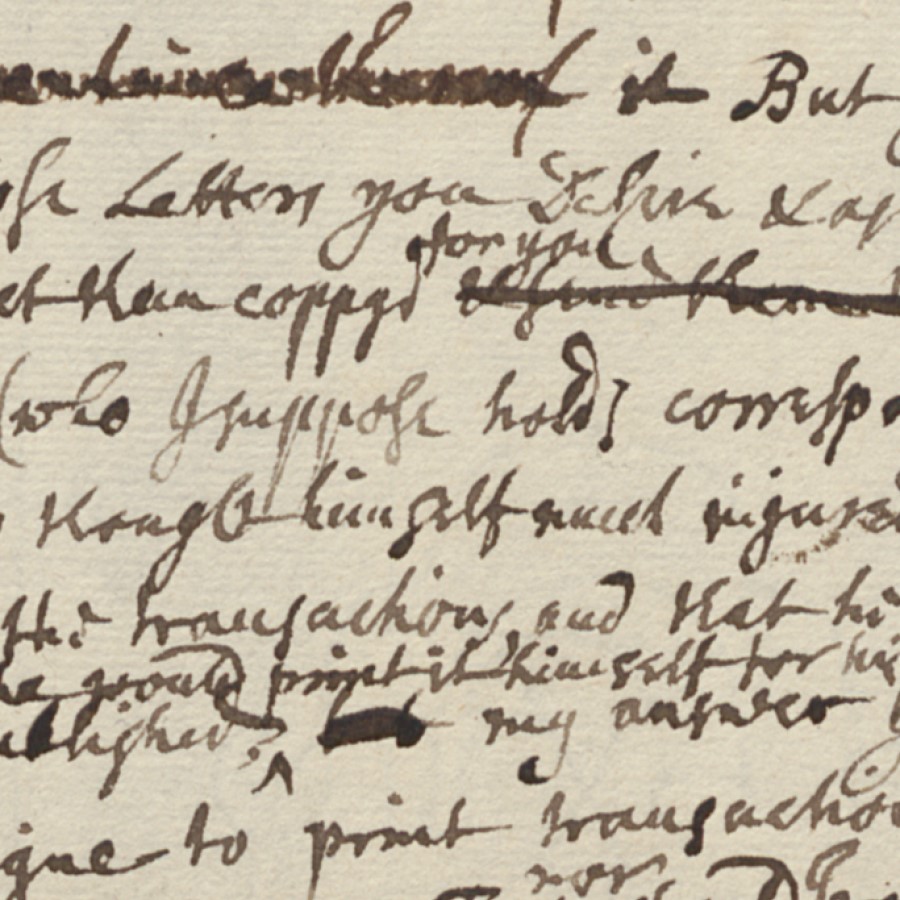 it But
Letters you desire & as
for you
let them coppyd
(who I suppose holds corresp
thought himself much injured
the transactions, and that he
he would print it himself for his
ublished, my answer
igne to print transactio
nor